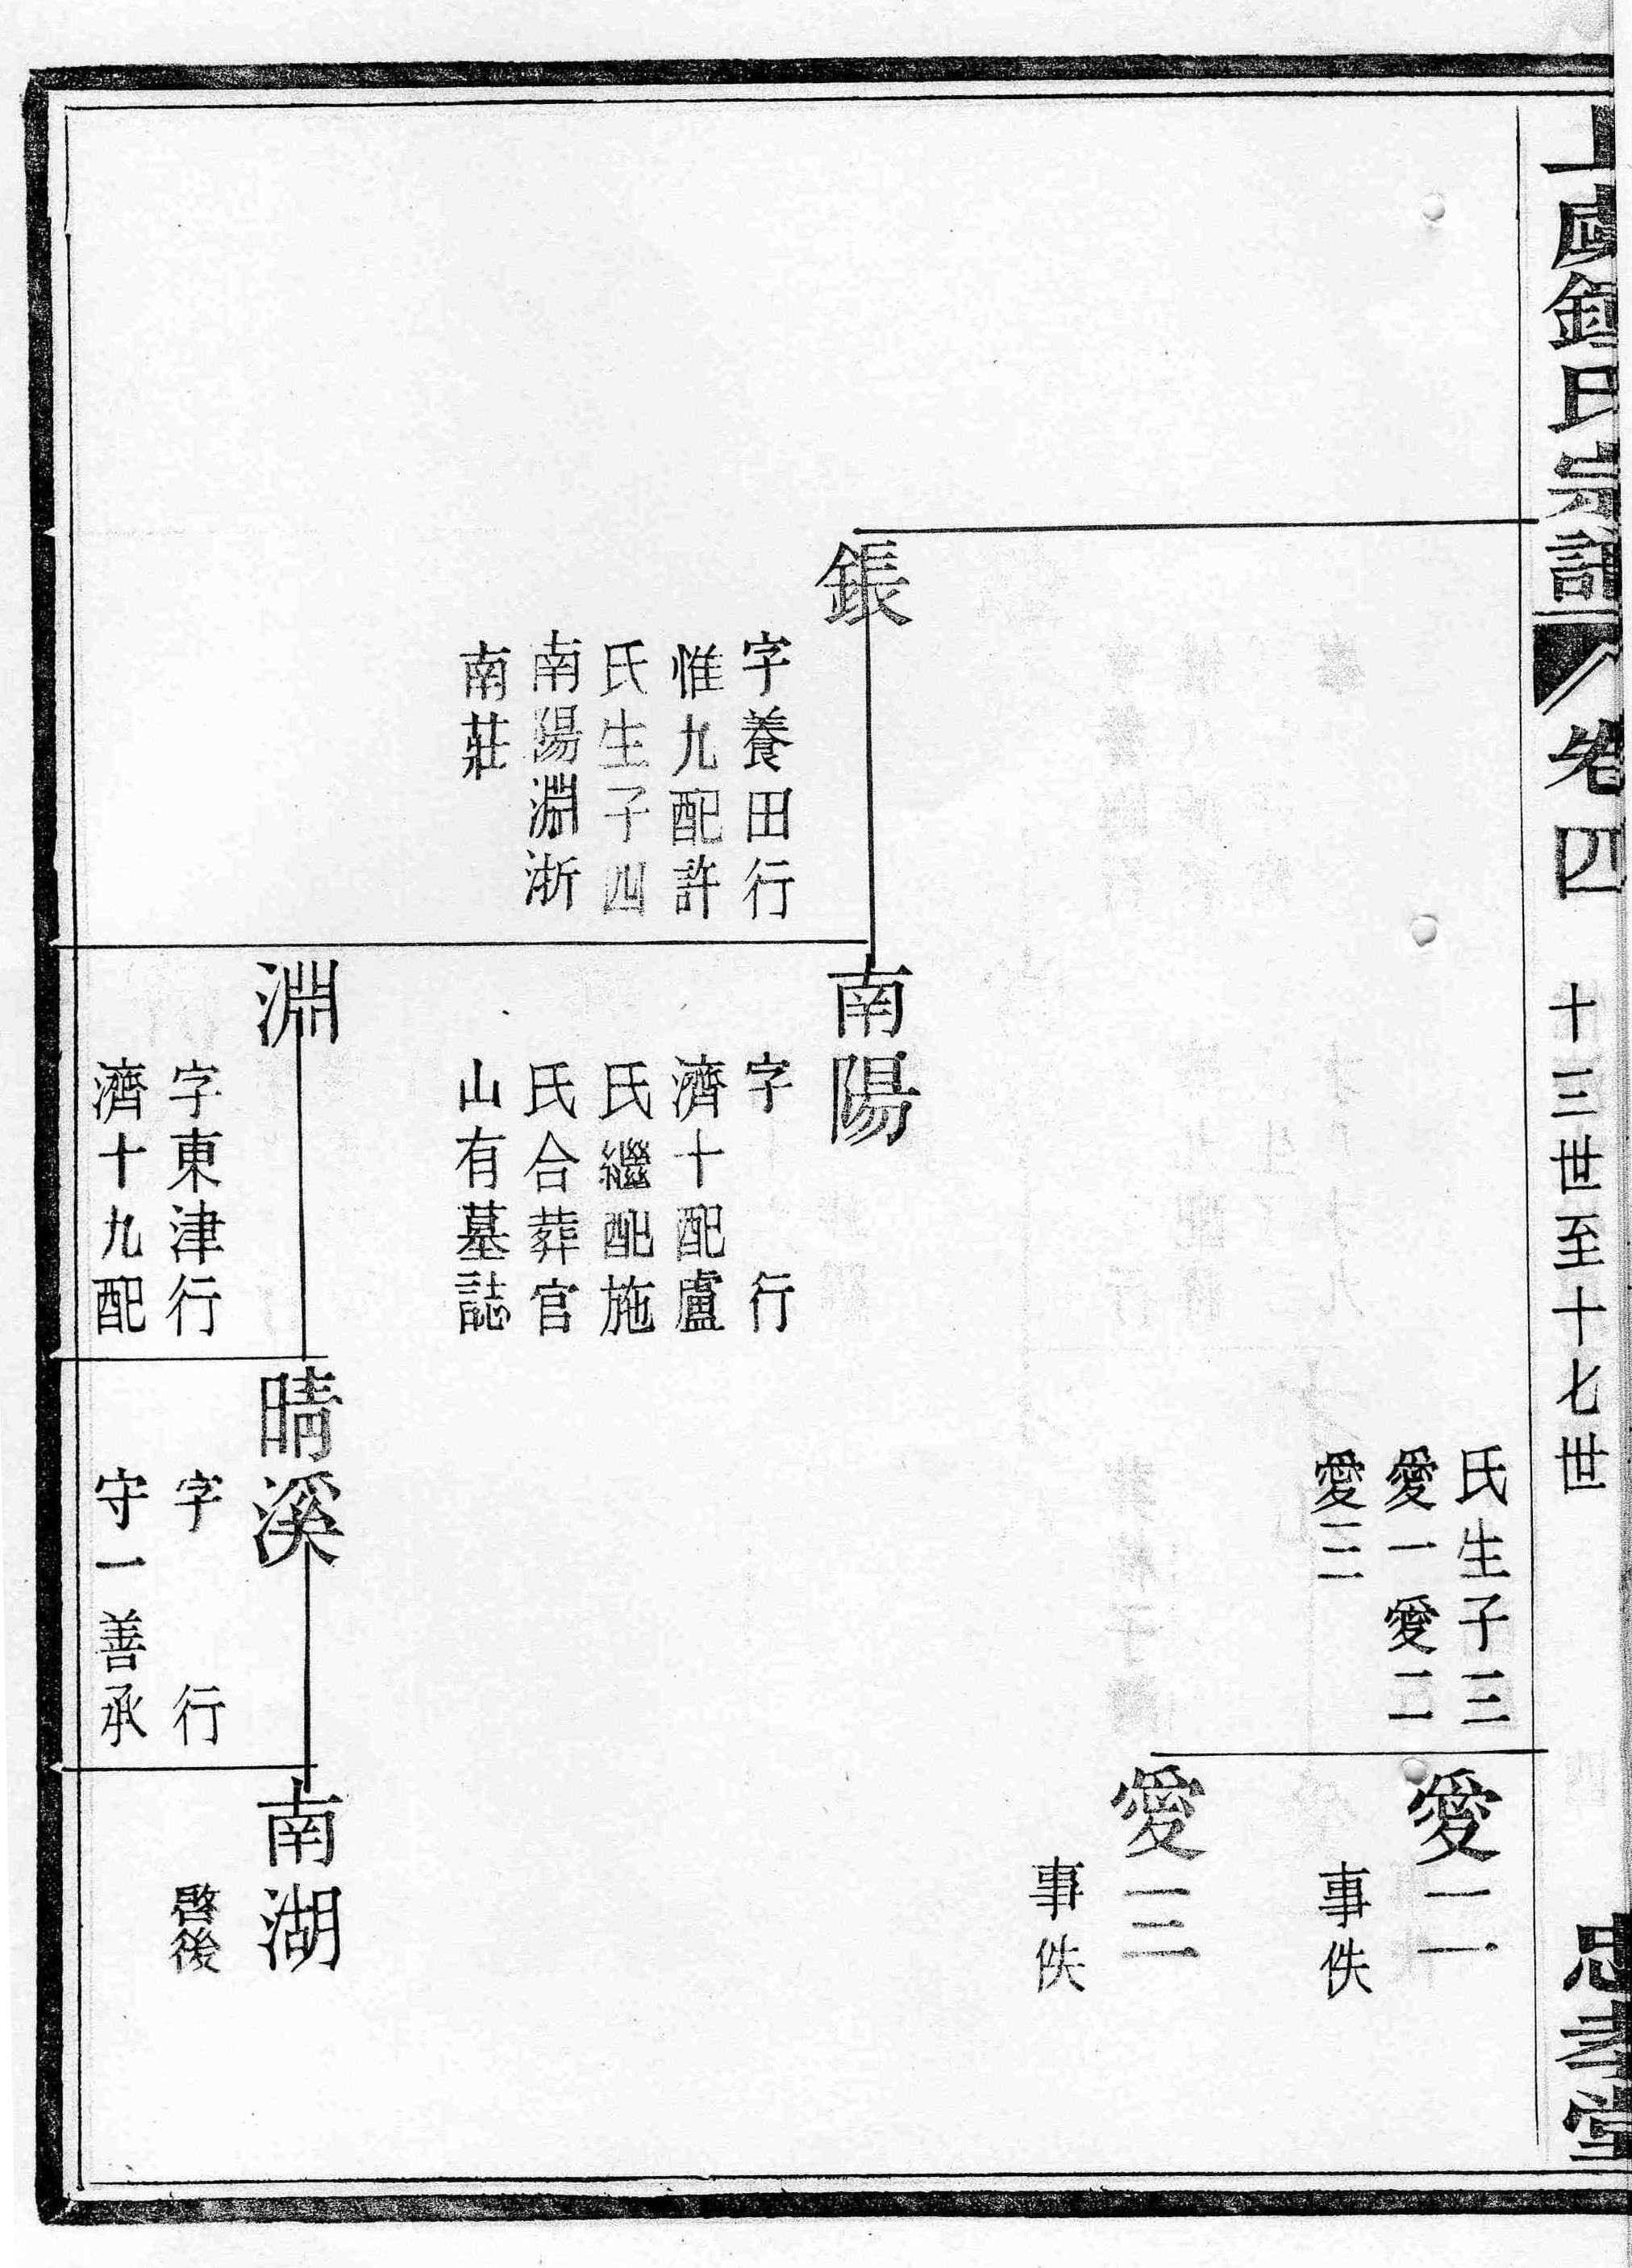 上虞鍾氏宗譜
卷四
十三世至十七世
忠孝堂
氏生子三
愛一愛二
愛三
愛二
事佚
愛三
事佚
鋹
字養田行
惟九配許
氏生子四
南陽淵浙
南莊
南陽
字 行
濟十配盧
氏繼配施
氏合葬官
山有墓誌
淵
字東津行
濟十九配
晴溪
字 行
守一善承
南湖
啓後